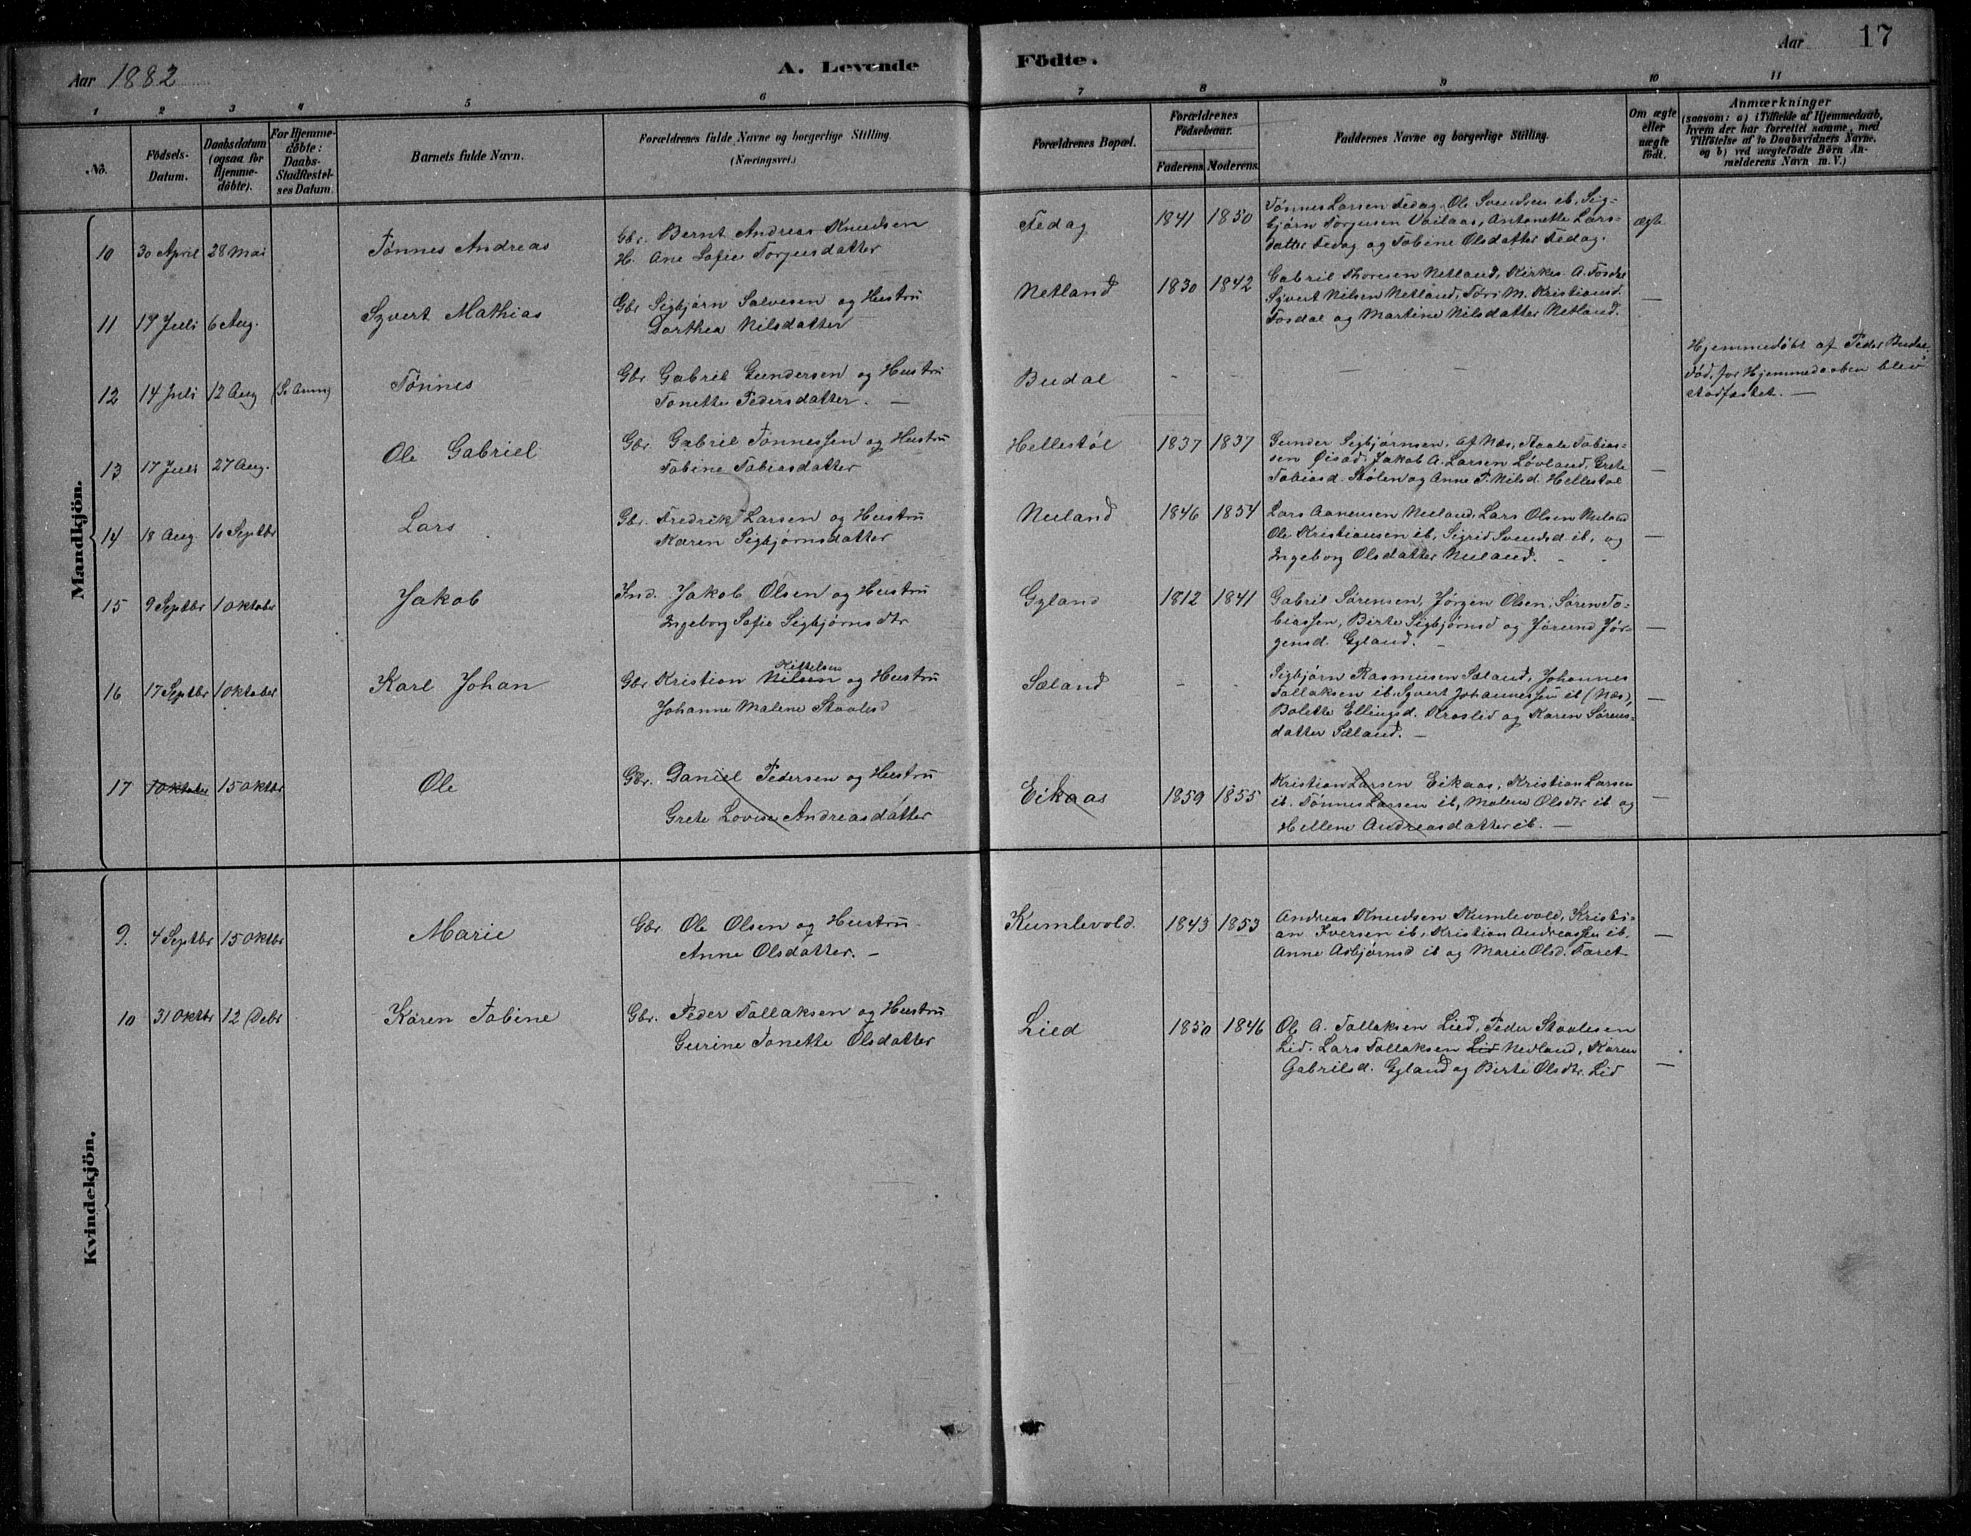 Aar 1882 A. Levende
Födte. Aar 17
1 2 3 4 5 6
7 8 9 10 11
No.
Födsels-Datum.
Daabsdatum (ogsaa for Hjemme-döbte).
For Hjemme-döbte: Daabs-Stadfæstel-ses Datum.
Barnets fulde Navn.
Forældrenes fulde Navne og borgerlige Stilling.
(Næringsvei.)
Forældrenes Bopæl.
Forældrenes Födselsaar.
Faderens. Moderens.
Faddernes Navne og borgerlige Stilling.
Om ægte eller uægte födt.
Anmærkninger
(saasom: a) i Tilfælde af Hjemmedaab,
hvem der har forrettet samme, med
Tilföielse af to Daabsvidners Navne,
og b) ved uægtefödte Börn An-
melderens Navn m. V.)
Mandkjön.
10 30 April 28 Mai Tønnes Andreas
Gbr. Bernt Andreas Knudsen
H. Ane Sofie Torjusdatter
Fedag 1841 1850
Tønnes Larsen Fedag. Ole Svendsen ib, Sig-
bjørn Torjusen Vailaas, Antonette Lars-
datter Fedag og Tobine Olsdatter Fedag.
ægte
11 19 Juli 6 Aug. Syvert Mathias
Gbr Sigbjørn Salvesen og Hustru
Dorthea Nilsdatter
Netland 1830 1842
Gabriel Thoresen Netland, Kirkes. A. Fosdal
Syvert Nilsen Netland, Tori M. Kristiansd.
Fosdal og Martine Nilsdatter Netland.
—
12 14 Juli 12 Aug (S. Anm) Tønnes
Gbr Gabriel Gundersen og Hustru
Tonette Pedersdatter. —
Budal - - - -
Hjemmedøbt af Peder Budal.
Død, før Hjemmedaaben blev
stadfæstet. —
13 17 Juli 27 Aug. Ole Gabriel
Gbr. Gabriel Tønnessen og Hustru
Tobine Tobiasdatter
Hellestøl 1837 1837
Gunder Sigbjørnsen, af Næs, Staale Tobias-
sen Øisad. Jakob A. Larsen Løvland, Grete
Tobiasd. Stølen og Anne T. Nilsd. Hellestøl
—
14 18 Aug 10 Septbr Lars
Gbr. Fredrik Larsen og Hustru
Karen Sigbjørnsdatter
Nuland 1846 1854
Lars Aanensen Nuland, Lars Olsen Nuland
Ole Kristiansen ib, Sigrid Svendsd ib, og
Ingeborg Olsdatter Nuland. - -
—
15 9 Septbr 1 Oktober Jakob
Ind. Jakob Olsen og Hustru
Ingeborg Sofie Sigbjørnsdtr
Gyland 1812 1841
Gabriel Sørensen, Jørgen Olsen, Søren To-
biassen, Birte Sigbjørnsd og Jørund Jør-
gensd. Gyland. —
—
16 17 Septbr 1 Oktober Karl Johan
Kittelsen
Gbr Kristian Nilsen og Hustru
Johanne Malene Staalesd
Sæland - -
Sigbjørn Rasmusen Sæland, Johannes
Tollaksen ib. Syvert Johannessen ib (Næs),
Bolette Ellingsd. Kroslid og Karen Sørens-
datter Sæland. —
—
17 1 Oktober 15 Oktbr Ole
Gbr. Daniel Pedersen og Hustru
Grete Lovise Andreasdatter
Eikaas 1859 1855
Kristian Larsen Eikaas, Kristian Larsen
ib. Tønnes Larsen ib, Malene Olsdtr ib og
Hellene Andreasdatter ib. —
—
Kvindekjön.
9. 4 Septbr 15 Oktbr Marie
Gbr Ole Olsen og Hustru
Anne Olsdatter. —
Kumlevold. 1843 1853
Andreas Knudsen Kumlevold, Kristi-
an Iversen ib, Kristian Andreassen ib.
Anne Asbjørnsd ib og Marie Olsd. Faret
—
10 31 Oktbr 12 Debr Karen Tobine
Gbr. Peder Tollaksen og Hustru
Gurine Tonette Olsdatter
Lied 1850 1846
Ole A. Tollaksen Lied, Peder Staalesen
Lid. Lars Tollaksen Lid Nedland, Karen
Gabrielsd. Gyland og Birte Olsdtr. Lid
—